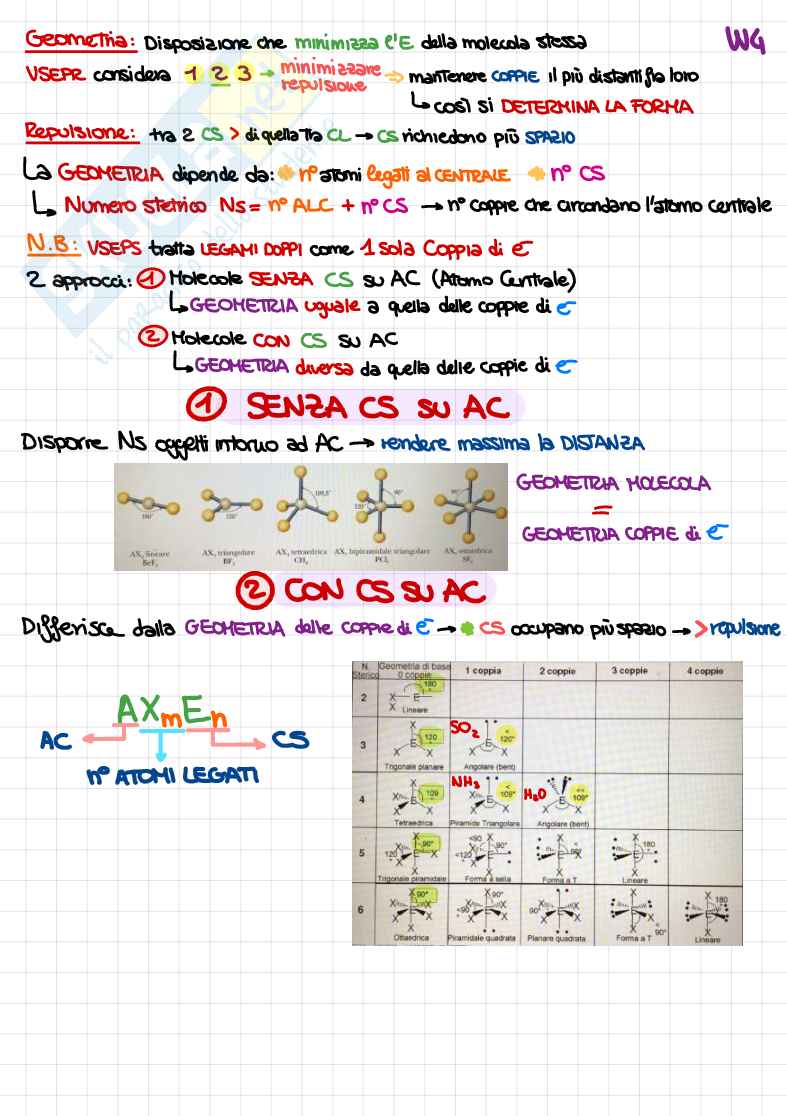 Geometria: Disposizione che minimizza l'E della molecola stessa
WG
VSEPR considera 1 2 3 → minimizzare repulsione → mantenere COPPIE il più distanti fra loro
↳ così si DETERMINA LA FORMA
Repulsione: tra 2 CS > di quella tra CL → CS richiedono più SPAZIO
La GEOMETRIA dipende da: * n° atomi legati al CENTRALE * n° CS
↳ Numero sterico Ns = n° ALC + n° CS → n° coppie che circondano l'atomo centrale
N.B: VSEPS tratta LEGAMI DOPPI come 1 sola Coppia di e-
2 approcci: 1 Molecole SENZA CS su AC (Atomo Centrale)
↳ GEOMETRIA uguale a quella delle coppie di e-
2 Molecole CON CS su AC
↳ GEOMETRIA diversa da quella delle coppie di e-
1 SENZA CS su AC
Disporre Ns oggetti intorno ad AC → rendere massima la DISTANZA
180° 120° 109,5° 90° 120° 90°
AX2 lineare AX3 triangolare AX4 tetraedrica AX5 bipiramidale triangolare AX6 ottaedrica
BeF2 BF3 CH4 PCl5 SF6
GEOMETRIA MOLECOLA
=
GEOMETRIA COPPIE di e-
2 CON CS SU AC
Differisce dalla GEOMETRIA delle coppie di e- → * CS occupano più spazio → > repulsione
AXmEn
AC CS
n° ATOMI LEGATI
N. Sterico Geometria di base 0 coppie 1 coppia 2 coppie 3 coppie 4 coppie
2 180 X E X
Lineare
3 120 SO2 < 120°
Trigonale planare Angolare (bent)
4 109 NH3 < 109° H2O << 109°
Tetraedrica Piramide Triangolare Angolare (bent)
5 120 90° <90 <120 90° <90 180
Trigonale piramidale Forma a sella Forma a T Lineare
6 90° <90 90° 90° < 90° 180
Ottaedrica Piramidale quadrata Planare quadrata Forma a T Lineare